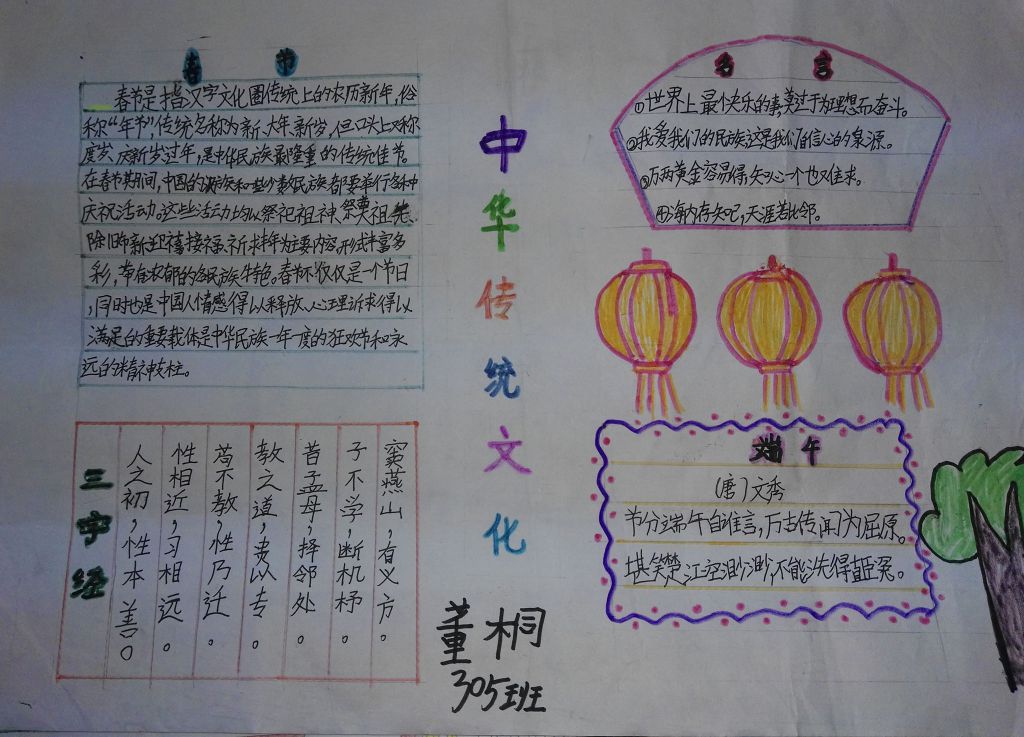 中华传统文化
春节
春节是指汉字文化圈传统上的农历新年,俗
称"年节",传统名称为新、大年、新岁,但口头上又称
度岁、庆新岁、过年,是中华民族最隆重的传统佳节。
在春节期间,中国的汉族和一些少数民族都要举行各种
庆祝活动。这些活动均以祭祀祖神、祭奠祖先、
除旧布新、迎禧接福、祈求丰年为主要内容,形式丰富多
彩,带有浓郁的各民族特色。春节不仅仅是一个节日
,同时也是中国人情感得以释放、心理诉求得以
满足的重要载体,是中华民族一年一度的狂欢节和永
远的精神支柱。
名言
①世界上最快乐的事,莫过于为理想而奋斗。
②我爱我们的民族,这是我们自信心的泉源。
③万两黄金容易得,知心一个也难求。
④海内存知己,天涯若比邻。
三字经
人之初,性本善。
性相近,习相远。
苟不教,性乃迁。
教之道,贵以专。
昔孟母,择邻处。
子不学,断机杼。
窦燕山,有义方。
端午
(唐)文秀
节分端午自谁言,万古传闻为屈原。
堪笑楚江空渺渺,不能洗得直臣冤。
董桐
305班